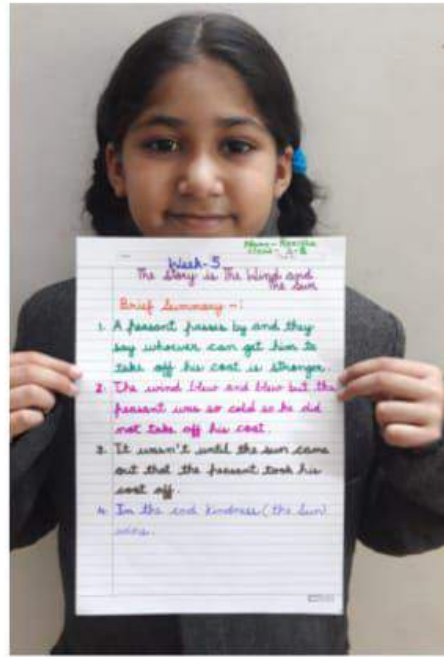 Name -
Class -
Week-5
The story is The Wind and
The Sun
Brief Summary -:
1. A peasant passes by and they
say whoever can get him to
take off his coat is stronger.
2. The wind blew and blew but the
peasant was so cold so he did
not take off his coat.
3. It wasn't until the sun came
out that the peasant took his
coat off.
4. In the end kindness (the Sun)
wins.